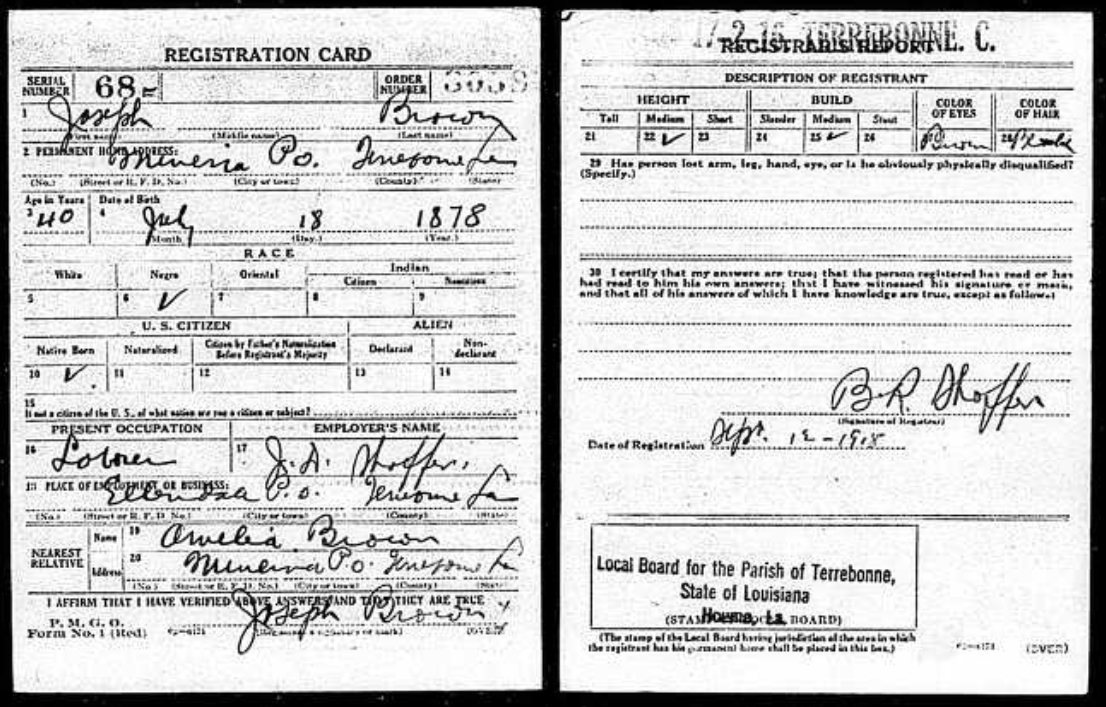 REGISTRATION CARD
SERIAL NUMBER 68
ORDER NUMBER
1 Joseph Brown
(First name) (Middle name) (Last name)
2 PERMANENT HOME ADDRESS:
Minerva P.o. Terrebonne La
(No.) (Street or R. F. D. No.) (City or town) (County) (State)
Age in Years Date of Birth
3 40 4 July 18 1878
Month (Day.) (Year.)
RACE
White Negro Oriental Indian
Citizen Noncitizen
5 6 ✓ 7 8 9
U. S. CITIZEN ALIEN
Native Born Naturalized Citizen by Father's Naturalization Before Registrant's Majority Declarant Non-declarant
10 ✓ 11 12 13 14
15
If not a citizen of the U. S., of what nation are you a citizen or subject?
PRESENT OCCUPATION EMPLOYER'S NAME
16 Laborer 17 J. A. Shaffer.
18 PLACE OF EMPLOYMENT OR BUSINESS:
Ellendale P.o. La
(No.) (Street or R. F. D. No.) (City or town) (County) (State)
NEAREST RELATIVE
Name 19 Amelia Brown
Address 20 Minerva P.o. Terrebonne La
(No.) (Street or R. F. D. No.) (City or town) (County) (State)
I AFFIRM THAT I HAVE VERIFIED ABOVE ANSWERS AND THAT THEY ARE TRUE
P. M. G. O.
Form No. 1 (Red) Joseph Brown
(Registrant's signature or mark) (OVER)
17-2-16 TERREBONNE. C.
REGISTRAR'S REPORT
DESCRIPTION OF REGISTRANT
HEIGHT BUILD COLOR OF EYES COLOR OF HAIR
Tall Medium Short Slender Medium Stout
21 22 ✓ 23 24 25 ✓ 26 27 Brown 28 Black
29 Has person lost arm, leg, hand, eye, or is he obviously physically disqualified?
(Specify.)
30 I certify that my answers are true; that the person registered has read or has
had read to him his own answers; that I have witnessed his signature or mark,
and that all of his answers of which I have knowledge are true, except as follows:
B. R. Shaffer
(Signature of Registrar)
Date of Registration Sept. 12 - 1918
Local Board for the Parish of Terrebonne,
State of Louisiana
Houma, La.
(STAMP OF LOCAL BOARD)
(The stamp of the Local Board having jurisdiction of the area in which
the registrant has his permanent home shall be placed in this box.)
(OVER)